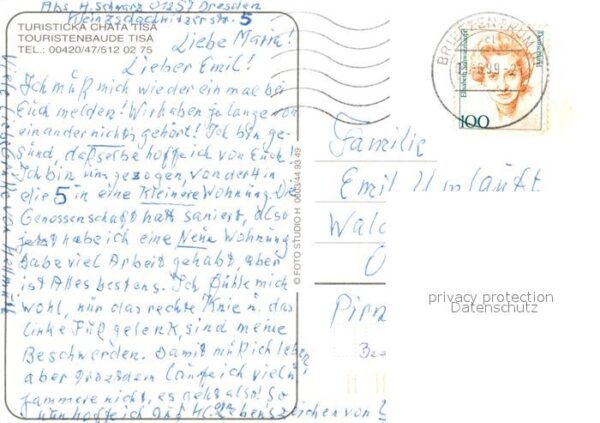 Abs. H. Schwarz 01257 Dresden
Kleinzschachwitzerstr. 5
TURISTICKÁ CHATA TISÁ
TOURISTENBAUDE TISÁ
TEL.: 00420/47/512 02 75
Liebe Maria!
Lieber Emil!
Ich muß mich wieder einmal bei
Euch melden! Wir haben ja lange von
einander nichts gehört! Ich bin ge-
sund, dasselbe hoffe ich von Euch!
Ich bin umgezogen, von der 1 in
die 5 in eine Kleinere Wohnung. Die
Genossenschaft hat saniert, also
jetzt habe ich eine Neue Wohnung
habe viel Arbeit gehabt, aber
ist Alles bestens. Ich fühle mich
wohl, nur das rechte Knie u. das
linke Fußgelenk, sind meine
Beschwerden. Damit muß ich leben
aber trotzdem laufe ich viel u.
jammere nicht, es geht also! So
nun hoffe ich auf Lebenszeichen von
Viele liebe Grüße von
© FOTO STUDIO H 0903/44 93 49
BRIEFZENTRUM
99
Elisabeth Schwarzhaupt
100
Familie
Emil Umlauft
Wald
Pirn
privacy protection
Datenschutz